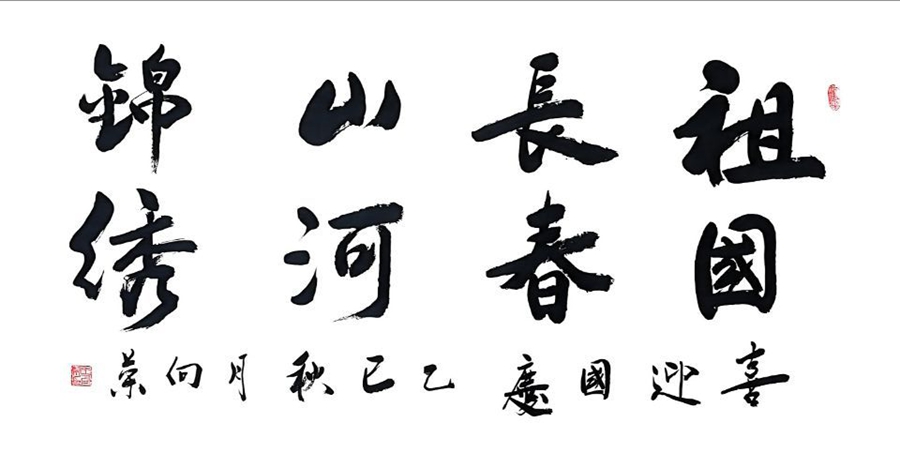 祖國
長春
山河
錦绣
喜迎國慶乙巳秋月向荣